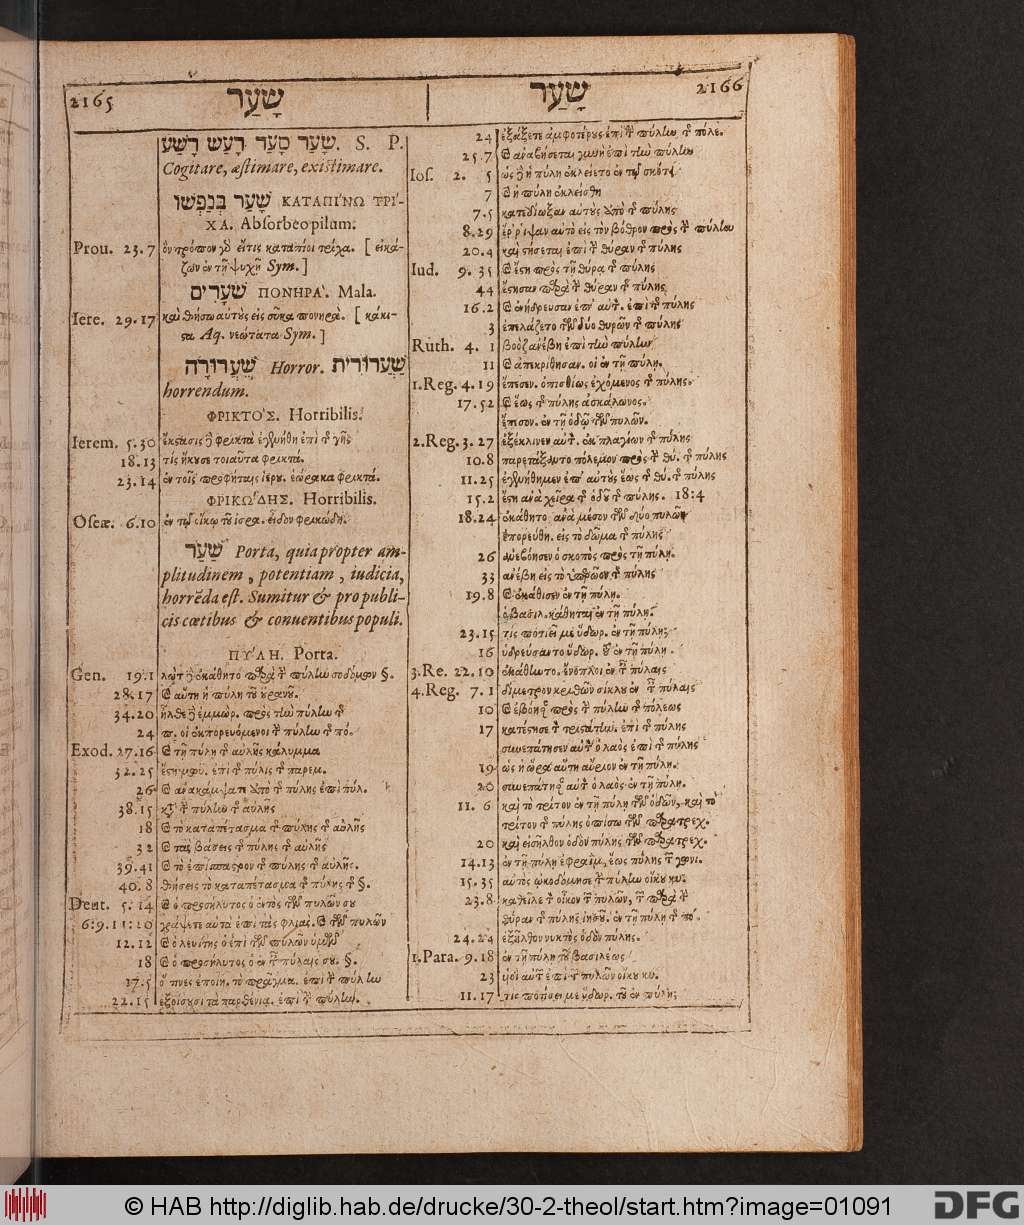 2165 שָׁעַר
שָׁעַר סָעַד רָעַשׁ רָשַׁע. S. P.
Cogitare, æstimare, existimare.
שָׁעַר בְּנַפְשׁוֹ ΚΑΤΑΠΙ´ΝΩ ΤΡΙ´-
ΧΑ. Absorbeo pilum.
Prou. 23.7 ὃν τρόπον γὸ εἴτις καταπίοι τρίχα. [ εἰκά-
ζων ἐν τῇ ψυχῇ Sym. ]
שֹׁעָרִים ΠΟΝΗΡΑ´. Mala.
Iere. 29.17 καὶ θήσω αὐτὺς εἰς σῦκα πονηρὰ. [ κάκι-
ϛα Aq. νεώτατα Sym. ]
שַׁעֲרוּרָה Horror. שַׁעֲרוּרִית
horrendum.
ΦΡΙΚΤΟ´Σ. Horribilis.
Ierem. 5.30 ἔκϛασις ϗ φρικτὰ ἐγενήθη ἐπὶ τ γῆς
18.13 τίς ἤκυσε τοιαῦτα φρικτά.
23.14 ἐν τοῖς προφήταις ἱερυ. ἑώρακα φρικτά.
ΦΡΙΚΩ´ΔΗΣ. Horribilis.
Oseæ. 6.10 ἐν τῷ οἴκῳ τῦ ἰσρα. εἶδον φρικώδη.
שַׁעַר Porta, quia propter am-
plitudinem, potentiam, iudicia,
horrēda est. Sumitur & pro publi-
cis cœtibus & conuentibus populi.
ΠΥ´ΛΗ. Porta.
Gen. 19.1 λὼτ ϗ ἐκάθητο παρὰ τ πύλίω σοδόμων §.
28.17 ϗ αὕτη ἡ πύλη τῦ ὐρανῦ.
34.20 ἦλθε ϗ ἐμμὼρ. πρὸς τίω πύλίω τ
24 π. οἱ ἐκπορευόμενοι τ πύλίω τ πό.
Exod. 27.16 ϗ τῇ πύλῃ τ αὐλῆς κάλυμμα
32.25 ἔϛη μωυ. ἐπὶ τ πύλις τ παρεμ.
26 ϗ ἀνακάμψατε ἀπὸ τ πύλης ἐπὶ πύλ.
38.15 κτ τ πύλίω τ αὐλῆς
18 ϗ τὸ καταπέτασμα τ πύλης τ αὐλῆς
32 ϗ τὰς βάσεις τ πύλης τ αὐλῆς
39.41 ϗ τὸ ἐπίσπαϛρον τ πύλης τ αὐλῆς.
40.8 θήσεις τὸ καταπέτασμα τ πύλης τ §.
Deut. 5.14 ϗ ὁ προσήλυτος ὁ ἐντὸς τῶν πυλῶν συ
6:9.11:20 γράψετε αὐτὰ ἐπὶ τὰς φλιας. ϗ τῶν πυλῶν
12.12 ϗ ὁ λευίτης ὁ ἐπὶ τῶν πυλῶν ὑμῶν
18 ϗ ὁ προσήλυτος ὁ ἐν τ πύλαις συ. §.
17.5 οἵτινες ἐποίη. τὸ πρᾶγμα. ἐπὶ τ πύλίω
22.15 ἐξοίσυσι τὰ παρθένια. ἐπὶ τ πύλίω.
שָׁעַר 2166
24 ἐξάξετε ἀμφοτέρυς ἐπὶ τ πύλίω τ πόλε.
25.7 ϗ ἀναβήσεται γυνὴ ἐπὶ τίω πύλίω
Ios. 2. 5 ὡς ϗ ἡ πύλη ἐκλείετο ἐν τῷ σκότει
7 ϗ ἡ πύλη ἐκλείσθη
7.5 κατεδίωξαν αὐτὺς ἀπὸ τ πύλης
8.29 ἔρριψαν αὐτὸ εἰς τὸν βόθρον πρὸς τ πύλίω
20.4 καὶ ϛήσεται ἐπὶ τ θύραν τ πύλης
Iud. 9.35 ϗ ἔϛη πρὸς τῇ θύρα τ πύλης
44 ἔϛησαν παρὰ τ θύραν τ πύλης
16.2 ϗ ἐνήδρευσαν ἐπ' αὐτ. ἐπὶ τ πύλης
3 ἐπελάζετο τῶν δύο θυρῶν τ πύλης
Ruth. 4. 1 βοὸζ ἀνέβη ἐπὶ τίω πύλίω
11 ϗ ἀπεκρίθησαν. οἱ ἐν τῇ πύλῃ.
1.Reg. 4.19 ἔπεσεν. ὀπισθίως ἐχόμενος τ πύλης.
17.52 ϗ ἕως τ πύλης ἀσκάλωνος.
ἔπεσον. ἐν τῇ ὁδῷ τῶν πυλῶν.
2.Reg. 3.27 ἐξέκλινεν αὐτ. ἐκ πλαγίων τ πύλης
10.8 παρετάξαντο πόλεμον πρὸς τ θύ. τ πύλης
11.25 ἐγενήθημεν ἐπ' αὐτὺς ἕως τ θύ. τ πύλης
15.2 ἔϛη ἀνὰ χεῖρα τ ὁδῦ τ πύλης. 18:4
18.24 ἐκάθητο ἀνὰ μέσον τῶν δύο πυλῶν
ἐπορεύθη. εἰς τὸ δῶμα τ πύλης
26 ἀνεβόησεν ὁ σκοπὸς πρὸς τῇ πύλῃ.
33 ἀνέβη εἰς τὸ ὑπερῶον τ πύλης
19.8 ϗ ἐκάθισεν ἐν τῇ πύλῃ.
ὁ βασιλ. κάθηται ἐν τῇ πύλῃ.
23.15 τίς ποτιεῖ με ὕδωρ. ἐν τῇ πύλῃ;
16 ὑδρεύσαντο ὕδωρ. ἐν τῇ πύλῃ.
3.Re. 22.10 ἐκάθηντο. ἔνοπλοι ἐν τ πύλαις
4.Reg. 7.1 δίμετρον κριθῶν σίκλυ ἐν τ πύλαις
10 ϗ ἐβόησ πρὸς τ πύλίω τ πόλεως
17 κατέϛησε τ τριϛάτίω. ἐπὶ τ πύλης
συνεπάτησεν αὐτ ὁ λαὸς ἐπὶ τ πύλης
19 ὡς ἡ ὥρα αὕτη αὔριον ἐν τῇ πύλῃ.
20 συνεπάτησ αὐτ ὁ λαὸς ἐν τῇ πύλῃ.
11. 6 καὶ τὸ τρίτον ἐν τῇ πύλῃ τῶν ὁδῶν, καὶ τὸ
τρίτον τ πύλης ὀπίσω τῶν παρατρεχ.
20 καὶ εἰσῆλθον ὁδὸν πύλης τῶν παρατρεχ.
14.13 ἐν τῇ πύλῃ ἐφραΐμ, ἕως πύλης τ γωνι.
15.35 αὐτὸς ᾠκοδόμησε τ πύλίω οἴκυ κυ.
23.8 καθεῖλε τ οἶκον τ πυλῶν, τ παρὰ τ
θύραν τ πύλης ἰησῦ. ἐν τῇ πύλῃ τ πό.
24.24 ἐξῆλθον νυκτὸς ὁδὸν πύλης.
1.Para. 9.18 ἐν τῇ πύλῃ τῦ βασιλέως
23 υἱοὶ αὐτ ἐπὶ τ πυλῶν οἴκυ κυ.
11.17 τίς ποτίσει με ὕδωρ. τῦ ἐν πύλῃ;
© HAB http://diglib.hab.de/drucke/30-2-theol/start.htm?image=01091
DFG